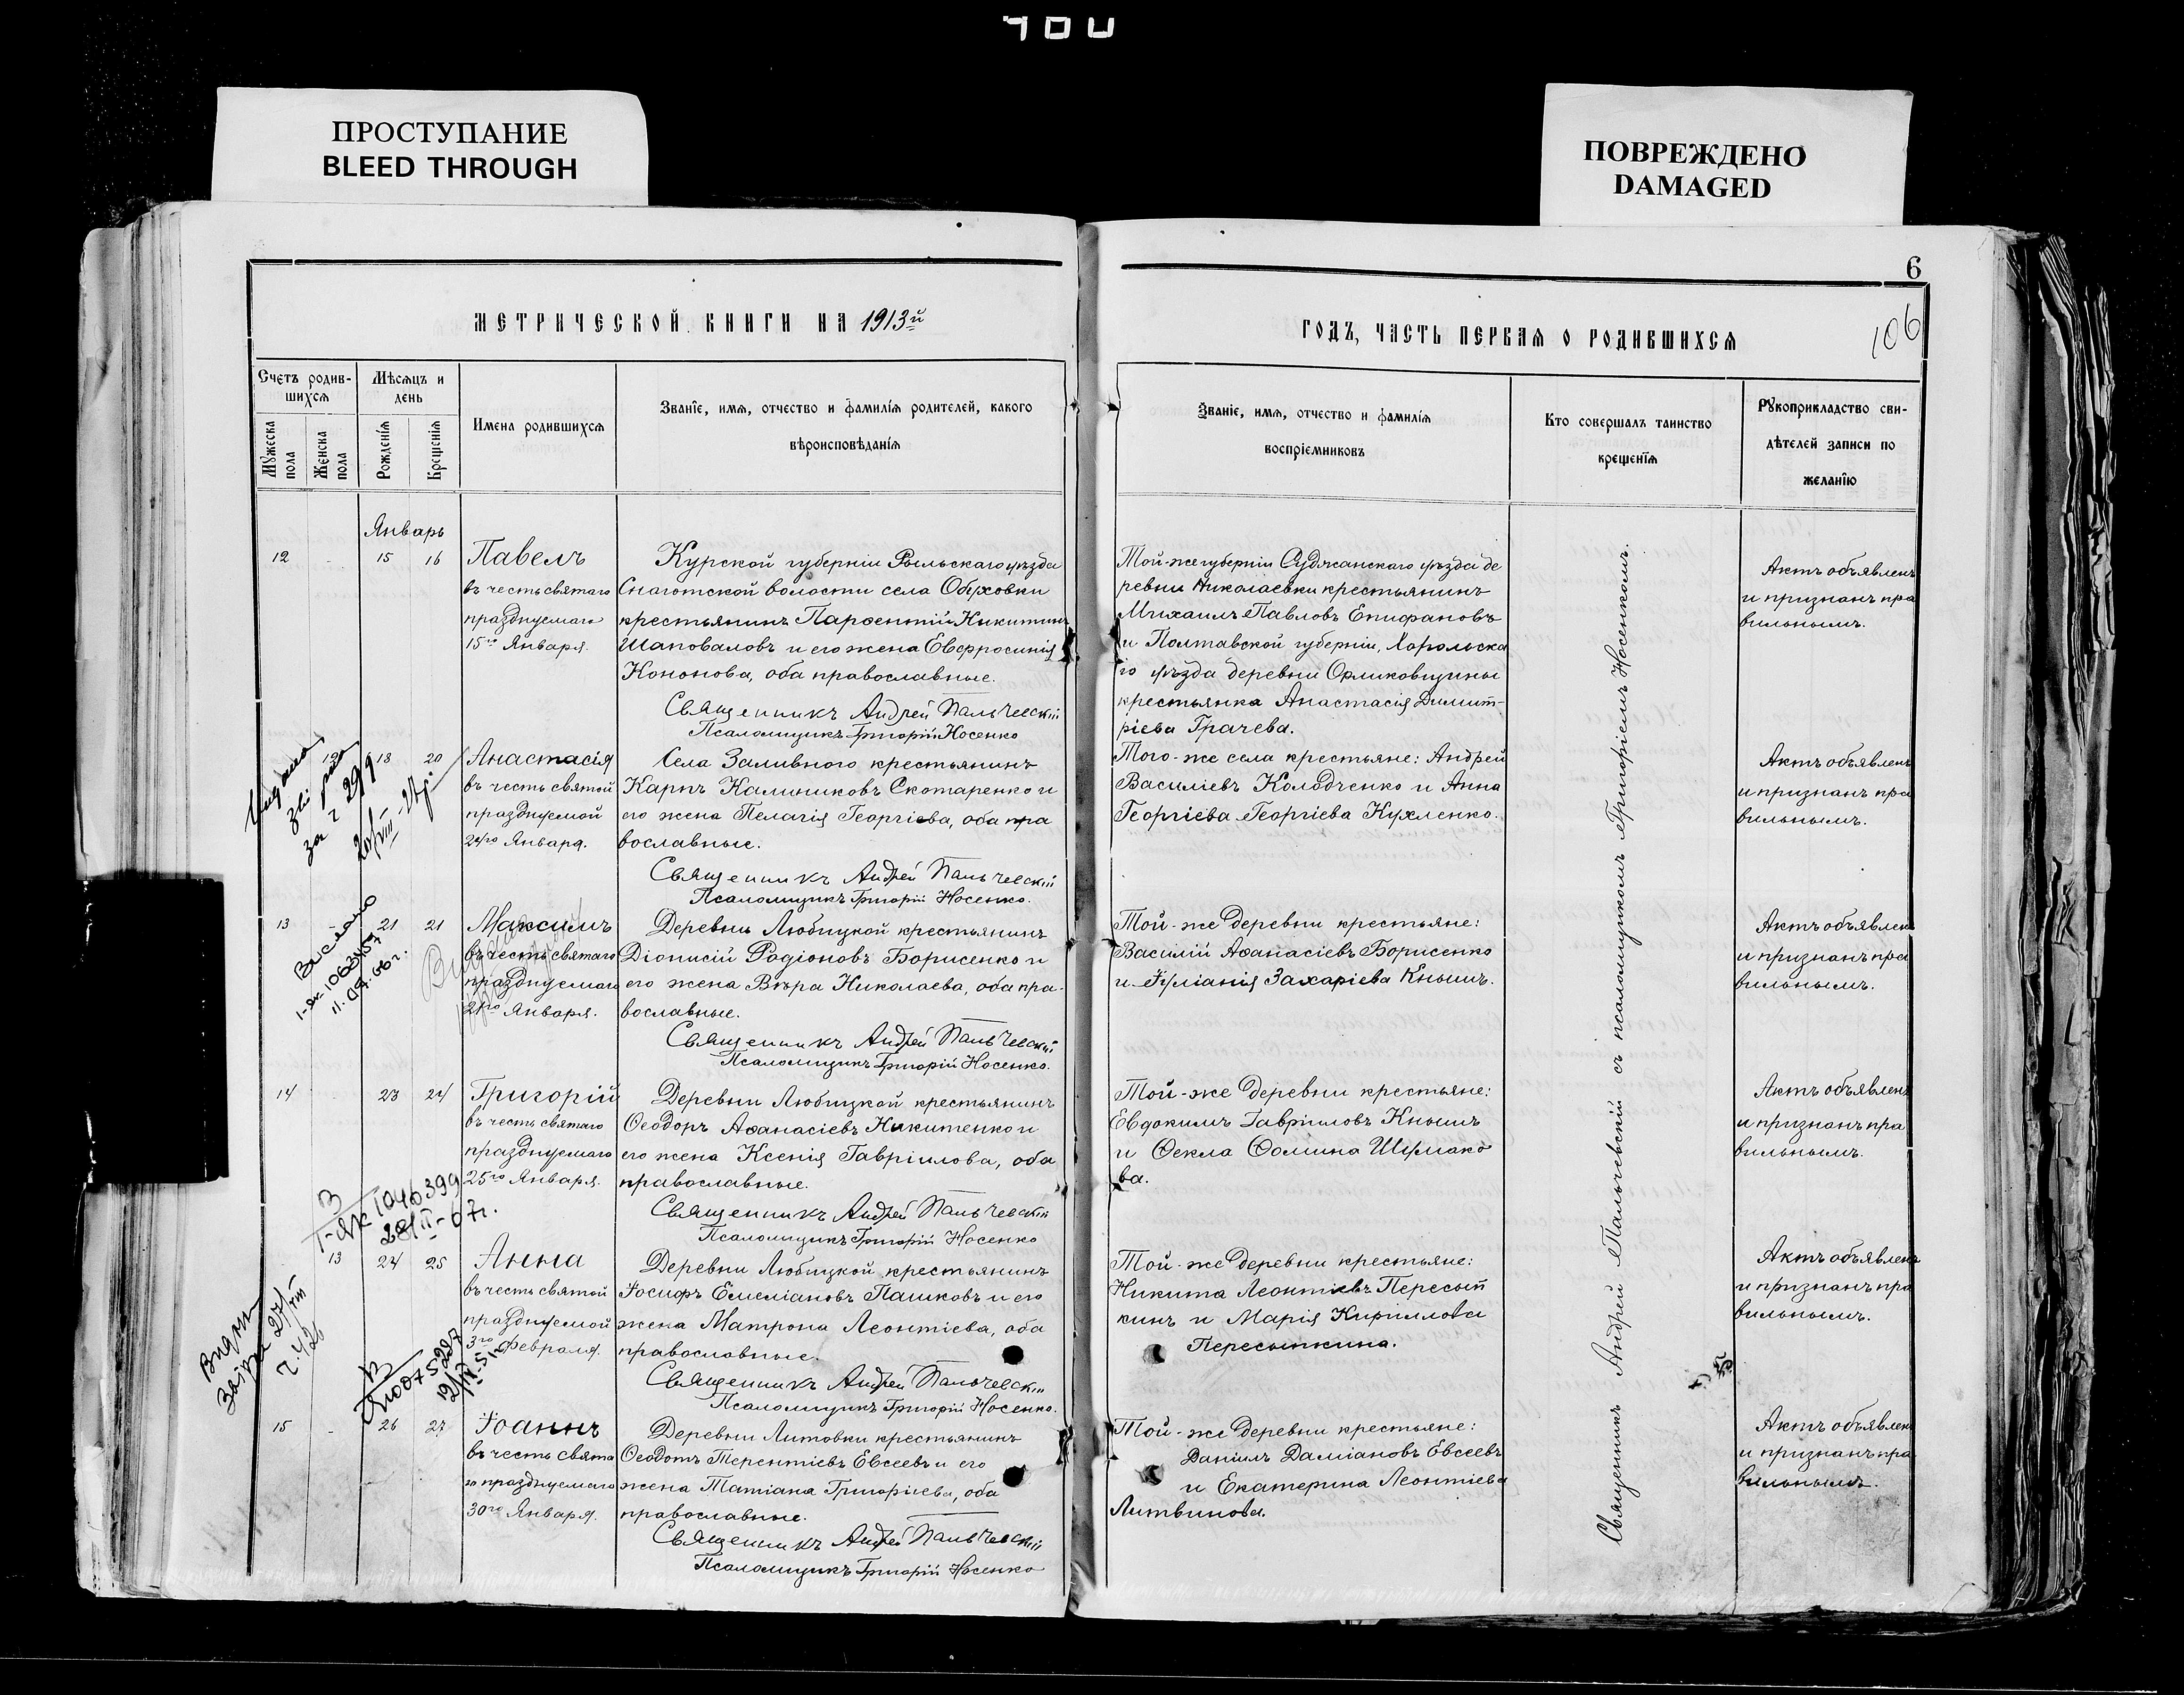 ПРОСТУПАНИЕ
BLEED THROUGH
ПОВРЕЖДЕНО
DAMAGED
6
106
МЕТРИЧЕСКОЙ КНИГИ НА 1913й
ГОДЪ, ЧАСТЬ ПЕРВАЯ О РОДИВШИХСЯ
Счетъ родив-
шихся
Мужеска
пола
Женска
пола
Мѣсяцъ и
день
Рожденія
Крещенія
Имена родившихся
Званіе, имя, отчество и фамилія родителей, какого
вѣроисповѣданія
Званіе, имя, отчество и фамилія
воспріемниковъ
Кто совершалъ таинство
крещенія
Рукоприкладство сви-
дѣтелей записи по
желанію
Январь
12 15 16
Павелъ
въ честь святаго
празднуемаго
15го Января.
Курской губерніи Рыльскаго уѣзда
Снаготской волости села Обуховки
крестьянинъ Парѳентій Никитинъ
Шаповаловъ и его жена Евфросинія
Кононова, оба православные.
Священникъ Андрей Пальчевскій
Псаломщикъ Григорій Носенко
Той-же губерніи Суджанскаго уѣзда де
ревни Николаевки крестьянинъ
Михаилъ Павловъ Епифановъ
и Полтавской губерніи, Хорольска
го уѣзда деревни Орликовщины
крестьянка Анастасія Димит-
ріева Грачева.
Актъ объявленъ
и признанъ пра
вильнымъ.
12 18 20
Анастасія
въ честь святой
празднуемой
Января.
Села Заливного крестьянинъ
Карпъ Калиниковъ Скотаренко и
его жена Пелагія Георгіева, оба пра
вославные.
Священникъ Андрей Пальчевскій
Псаломщикъ Григорій Носенко.
Того-же села крестьяне: Андрей
Василіевъ Колодченко и Анна
Георгіева Георгіева Кухленко.
Актъ объявленъ
и признанъ пра
вильнымъ.
13 21 21
Максимъ
въ честь святаго
празднуемаго
21го Января.
Выслано
1-як 1063457
11.09.06 г.
Деревни Любицкой крестьянинъ
Діонисій Родіоновъ Борисенко и
его жена Вѣра Николаева, оба пра-
вославные.
Священникъ Андрей Пальчевскій
Псаломщикъ Григорій Носенко.
Той-же деревни крестьяне:
Василій Аѳанасіевъ Борисенко
и Іуліанія Захаріева Кнышъ.
Актъ объявленъ
и признанъ пра
вильнымъ.
14 23 24
Григорій
въ честь святаго
празднуемаго
25го Января.
Деревни Любицкой крестьянинъ
Ѳеодоръ Аѳанасіевъ Никитенко и
его жена Ксенія Гавріилова, оба
православные.
Священникъ Андрей Пальчевскій
Псаломщикъ Григорій Носенко
Той-же деревни крестьяне:
Евдокимъ Гавріиловъ Кнышъ
и Ѳекла Ѳомина Шумако
ва.
Актъ объявленъ
и признанъ пра
вильнымъ.
1040399
13 24 25
Анна
въ честь святой
празднуемой
3го Февраля.
Деревни Любицкой крестьянинъ
Іосифъ Емеліановъ Пашковъ и его
жена Матрона Леонтіева, оба
православные.
Священникъ Андрей Пальчевскій
Псаломщикъ Григорій Носенко.
Той-же деревни крестьяне:
Никита Леонтіевъ Пересып
кинъ и Марія Кириллова
Пересыпкина.
Актъ объявленъ
и признанъ пра
вильнымъ.
15 26 27
Іоаннъ
въ честь свята
го празднуемаго
30го Января.
Деревни Литовки крестьянинъ
Ѳеодотъ Терентіевъ Евсеевъ и его
жена Татіана Григоріева, оба
православные.
Священникъ Андрей Пальчевскій
Псаломщикъ Григорій Носенко
Той-же деревни крестьяне:
Даніилъ Даміановъ Евсеевъ
и Екатерина Леонтіева
Литвинова.
Актъ объявленъ
и признанъ пра
вильнымъ.
Священникъ Андрей Пальчевскій съ псаломщикомъ Григоріемъ Носенкомъ.